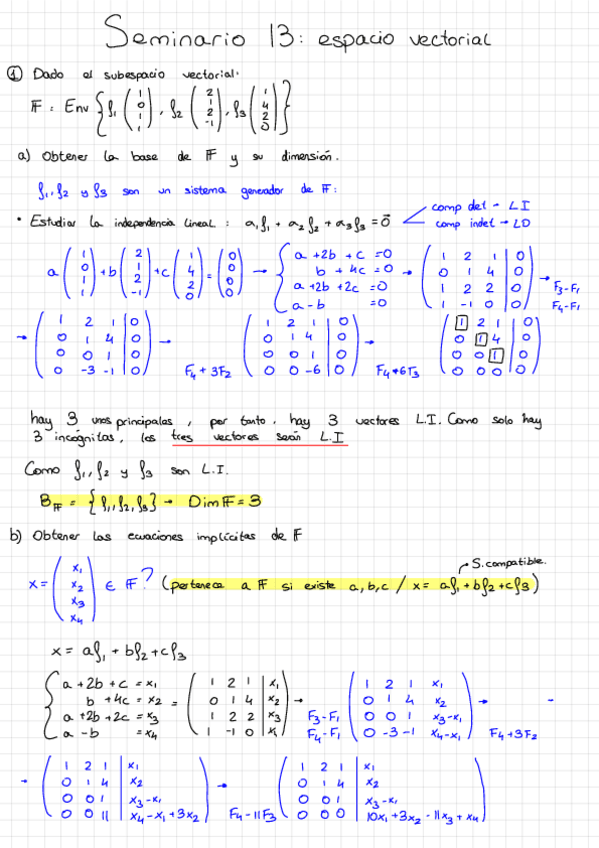 Seminario 13: espacio vectorial
① Dado el subespacio vectorial.
F: Env { f1 (1 0 1 1), f2 (2 1 2 -1), f3 (1 4 2 0) }
a) Obtener la base de F y su dimensión.
f1, f2 y f3 son un sistema generador de F:
• Estudiar la independencia lineal: a1f1 + a2f2 + a3f3 = 0⃗
comp det → LI
comp indet → LD
a (1 0 1 1) + b (2 1 2 -1) + c (1 4 2 0) = (0 0 0 0) →
a + 2b + c = 0
b + 4c = 0
a + 2b + 2c = 0
a - b = 0
→
1 2 1 | 0
0 1 4 | 0
1 2 2 | 0
1 -1 0 | 0
→ F3-F1
F4-F1
→
1 2 1 | 0
0 1 4 | 0
0 0 1 | 0
0 -3 -1 | 0
→ F4 + 3F2
1 2 1 | 0
0 1 4 | 0
0 0 1 | 0
0 0 -6 | 0
→ F4+6F3
1 2 1 | 0
0 1 4 | 0
0 0 1 | 0
0 0 0 | 0
hay 3 unos principales, por tanto, hay 3 vectores L.I. Como solo hay
3 incógnitas, los tres vectores serán L.I
Como f1, f2 y f3 son L.I.
BF = {f1, f2, f3} → Dim F = 3
b) Obtener las ecuaciones implícitas de F
S. compatible.
x = (x1 x2 x3 x4) ∈ F? (pertenece a F si existe a, b, c / x = af1 + bf2 + cf3)
x = af1 + bf2 + cf3
a + 2b + c = x1
b + 4c = x2
a + 2b + 2c = x3
a - b = x4
=
1 2 1 | x1
0 1 4 | x2
1 2 2 | x3
1 -1 0 | x1
→ F3-F1
F4-F1
1 2 1 x1
0 1 4 x2
0 0 1 x3-x1
0 -3 -1 x4-x1
→ F4+3F2
→
1 2 1 | x1
0 1 4 | x2
0 0 1 | x3-x1
0 0 11 | x4-x1+3x2
→ F4-11F3
1 2 1 | x1
0 1 4 | x2
0 0 1 | x3-x1
0 0 0 | 10x1+3x2-11x3+x4